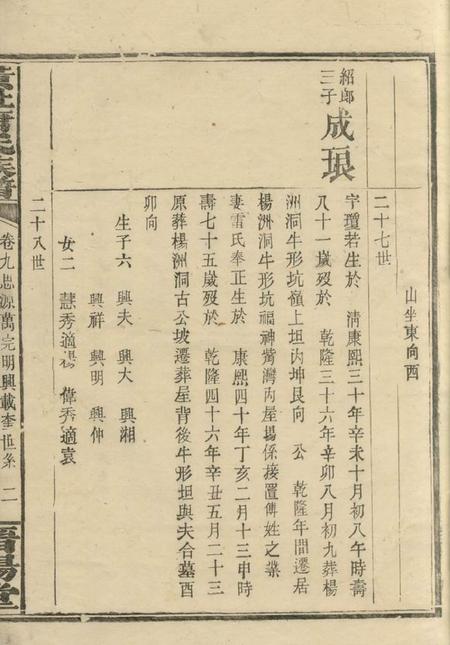 山坐東向西
二十七世
紹郎三子
成琅
字瓊若生於 清康熙三十年辛未十月初八午時壽
八十一歲歿於 乾隆三十六年辛卯八月初九葬楊
洲洞牛形坑嶺上坦內坤艮向 公 乾隆年間遷居
楊洲洞牛形坑福神灣內屋場係接置傅姓之業
妻雷氏奉正生於 康熙四十年丁亥二月十三申時
壽七十五歲歿於 乾隆四十六年辛丑五月二十三
原葬楊洲洞古公坡遷葬屋背後牛形坦與夫合墓酉
卯向
生子六 興夫 興大 興湘
興祥 興明 興伸
女二 慧秀適楊 偉秀適袁
二十八世
族譜
卷九思源萬完明興載奎世系 二
晉陽堂